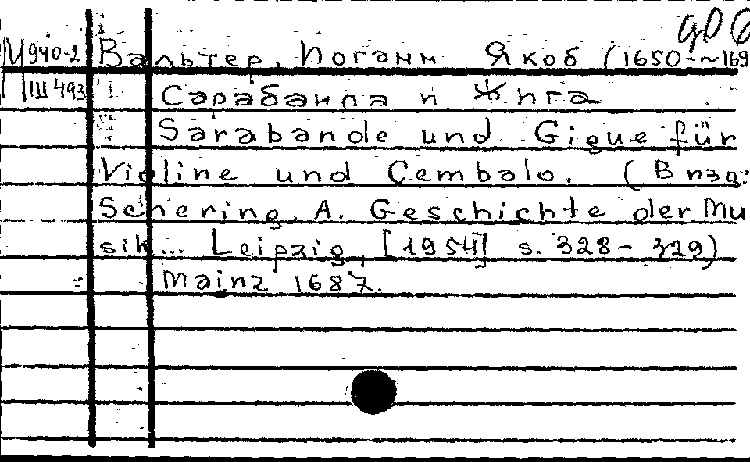 М940-2 Вальтер, Иоганн Якоб (1650-~169
Ш 493 Сарабанда и Жига
Sarabande und Gigue für
Violine und Cembalo. (В изд:
Schering, A. Geschichte der Mu
sik... Leipzig, [1954] s. 328-329)
Mainz 1687.